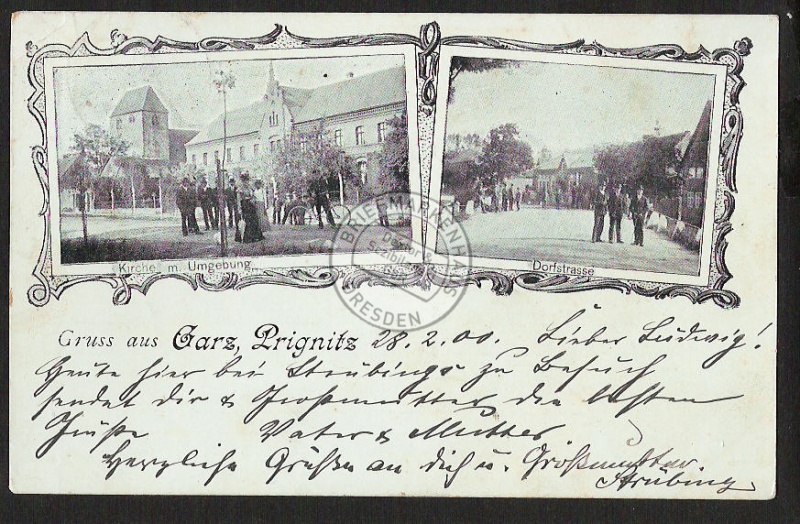 Kirche m. Umgebung.
Dorfstrasse
BRIEFMARKENHAUS
DRESDEN
Gruss aus Garz, Prignitz 28.2.00. Lieber Ludwig!
Heute hier bei Strübings zu Besuch
sendet dir & Großmutter die besten
Grüße Vater & Mutter
Herzliche Grüßen an dich u. Großmutter
Strübing